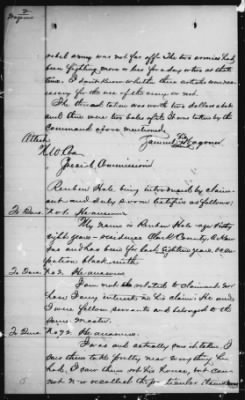 2
Wagoner
rebel army was not far off. The two armies had
been fighting more or less for a day or two at that
time. I don't know whether this
for the use of the army or not.
The thread taken was worth two dollars a bale
and there were two bales of it. It was taken by the
command above mentioned.
Samuel Wagoner
Attest
Special Commissioner
Reuben Hale being introduced by claim-
ant and duly sworn testifies as follows:
To Ques. No 1. He answers
My name is Reuben Hale age thirty
eight years - residence Clark County, Arkan-
sas and has been for last eighteen years, occu-
pation black smith
To Ques No 2. He answers
I am not related to claimant nor
have I any interest in his claim. He and
I were fellow servants and belonged to the
same master.
To Ques No 72. He answers.
I was not actually
saw them take poultry near everything he
had, I saw them at his house, but can
not now recollect the particular